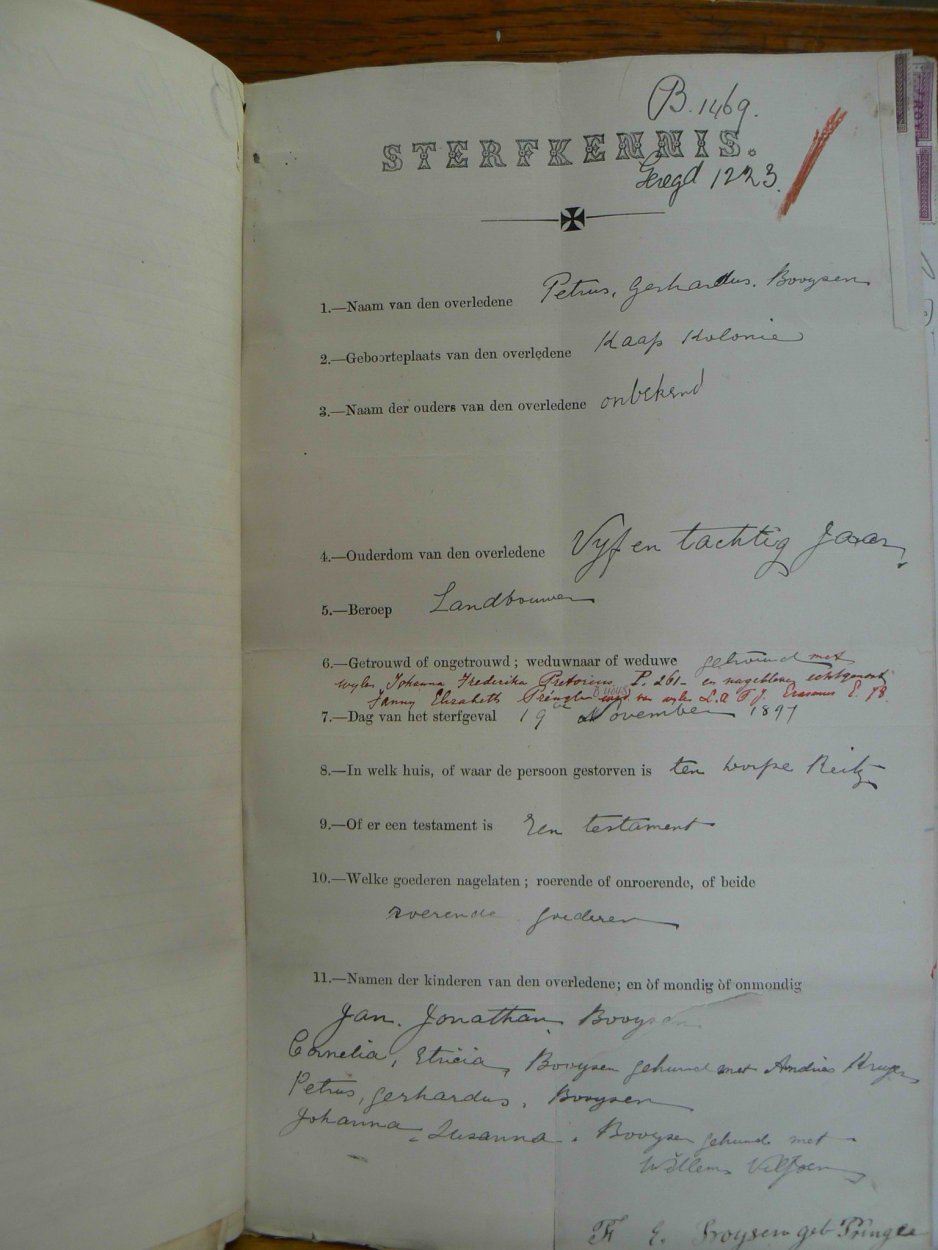 B. 1469.
STERFKENNIS.
Geregd 1223.
1.—Naam van den overledene Petrus, Gerhardus. Booysen
2.—Geboorteplaats van den overledene Kaap Kolonie
3.—Naam der ouders van den overledene onbekend
4.—Ouderdom van den overledene Vyf en tachtig Jaar.
5.—Beroep Landbouwer
6.—Getrouwd of ongetrouwd; weduwnaar of weduwe getrouwd met
wylen Johanna Frederika Pretorius P. 261 en nagebleven echtgenoot
Fanny Elizabeth Pringle van wylen L.A.T.J. Erasmus E. 78.
7.—Dag van het sterfgeval 19 November 1897
8.—In welk huis, of waar de persoon gestorven is ten dorpe Reitz
9.—Of er een testament is Een testament
10.—Welke goederen nagelaten; roerende of onroerende, of beide
roerende goederen
11.—Namen der kinderen van den overledene; en òf mondig òf onmondig
Jan. Jonathan Booysen
Cornelia, Booysen gehuwd met Andries
Petrus, Gerhardus. Booysen
Johanna Susanna. Booysen gehuwd met
Willem Viljoen
F. E. Booysen geb Pringle